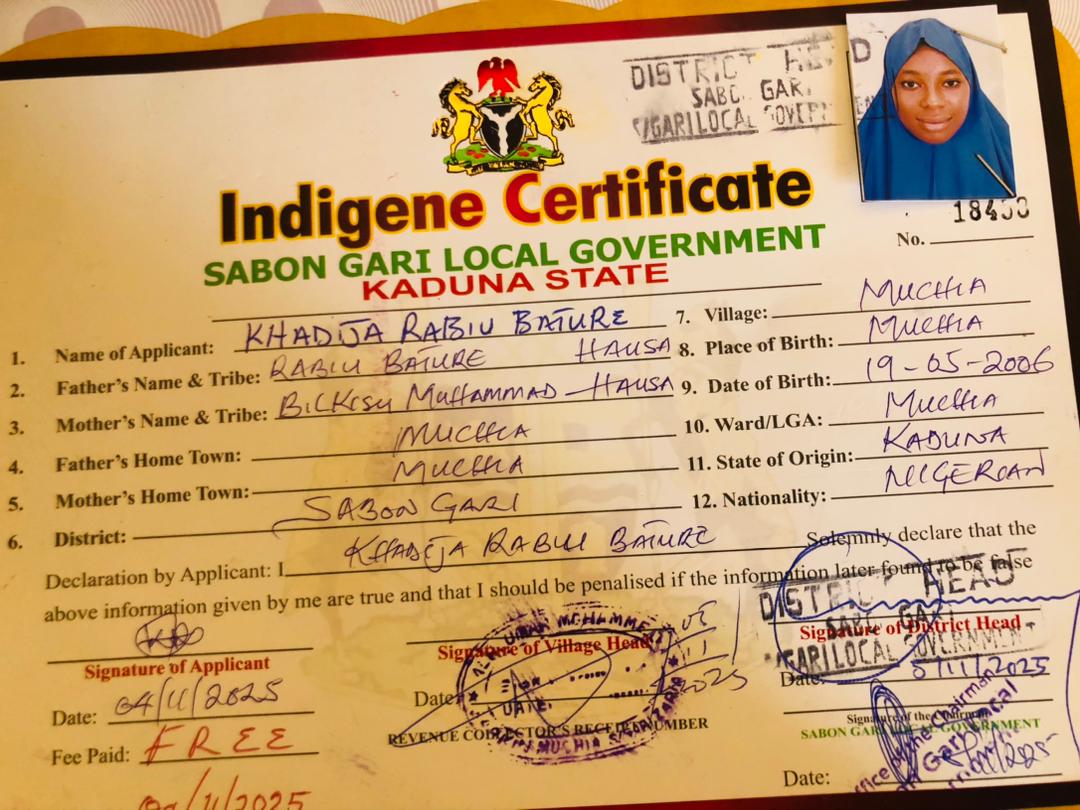 DISTRICT HEAD
SABO GARI
GARI LOCAL GOVERN
Indigene Certificate
SABON GARI LOCAL GOVERNMENT
KADUNA STATE
No.
1. Name of Applicant: KHADIJA RABIU BATURE
2. Father's Name & Tribe: RABIU BATURE HAUSA
3. Mother's Name & Tribe: BILKISU MUHAMMAD HAUSA
4. Father's Home Town: MUCHIA
5. Mother's Home Town: MUCHIA
6. District: SABON GARI
7. Village: MUCHIA
8. Place of Birth: MUCHIA
9. Date of Birth: 19-05-2006
10. Ward/LGA: MUCHIA
11. State of Origin: KADUNA
12. Nationality: NIGERIAN
Declaration by Applicant: I KHADIJA RABIU BATURE Solemnly declare that the
above information given by me are true and that I should be penalised if the information later found to be false
Signature of Applicant
Date: 04/11/2025
Fee Paid: FREE
04/11/2025
Signature of Village Head
Date
REVENUE COLLECTOR'S RECEIPT NUMBER
DISTRICT HEAD
SABO GARI
GARI LOCAL GOVERNMENT
Signature of District Head
Date: 5/11/2025
Signature of the Chairman
SABON GARI LOCAL GOVERNMENT
Office of the Chairman
Date: